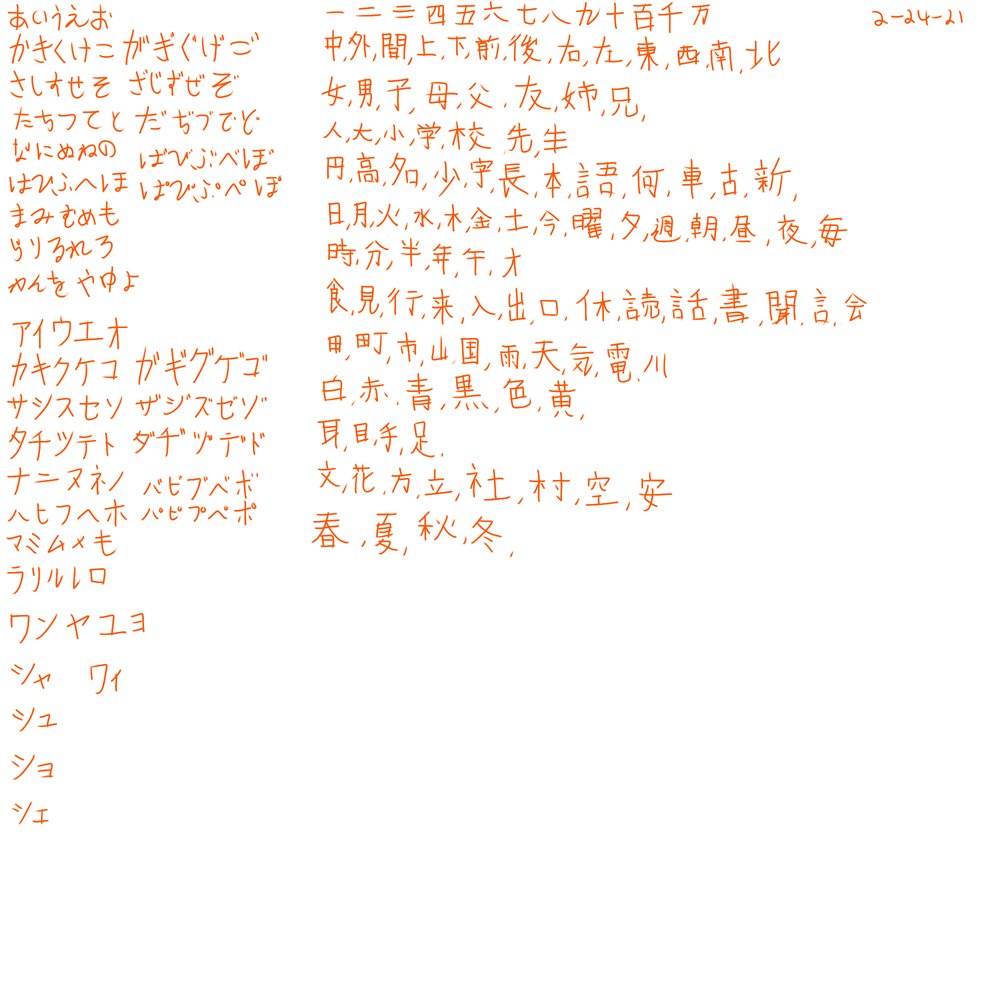 あいうえお
かきくけこ がぎぐげご
さしすせそ ざじずぜぞ
たちつてと だぢづでど
なにぬねの ばびぶべぼ
はひふへほ ぱぴぷぺぽ
まみむめも
らりるれろ
わんを やゆよ
アイウエオ
カキクケコ ガギグゲゴ
サシスセソ ザジズゼゾ
タチツテト ダヂヅデド
ナニヌネノ バビブベボ
ハヒフヘホ パピプペポ
マミムメモ
ラリルレロ
ワンヤユヨ
シャ ウィ
シュ
ショ
シェ
一二三四五六七八九十百千万
中,外,間,上,下,前,後,右,左,東,西,南,北
女,男,子,母,父,友,姉,兄,
人,大,小,学,校 先,生
円,高,名,少,字,長,本,語,何,車,古,新,
日,月,火,水,木,金,土,今,曜,夕,週,朝,昼,夜,毎
時,分,半,年,午,才
食,見,行,来,入,出,口,休,読,話,書,聞,言,会
田,町,市,山,国,雨,天,気,電,川
白,赤,青,黒,色,黄,
耳,目,手,足.
文,花,方,立,社,村,空,安
春,夏,秋,冬,
2-24-21